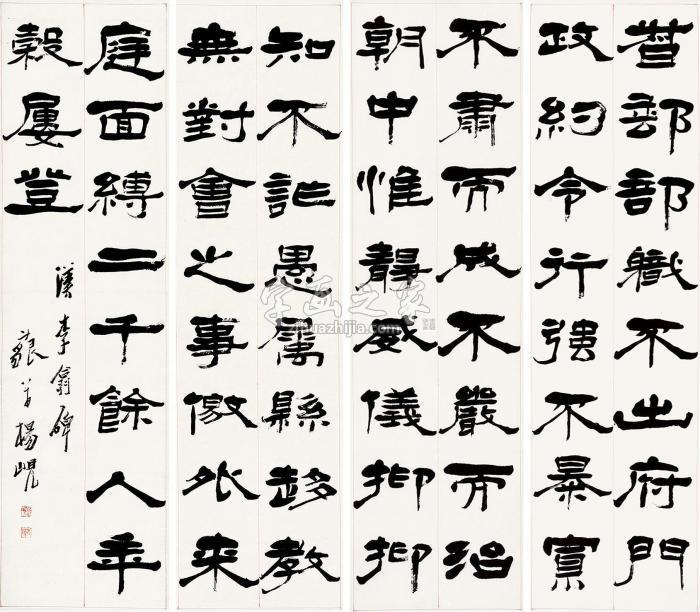 督郵部職不出府門
政約令行强不暴寡
不肅而成不嚴而治
朝中惟靜威儀抑抑
知不詐愚屬縣趍教
無對會之事儌外來
庭面縛二千餘人年
穀屢登
漢李翕碑
藐翁楊峴
字画之家
zihuazhijia.com